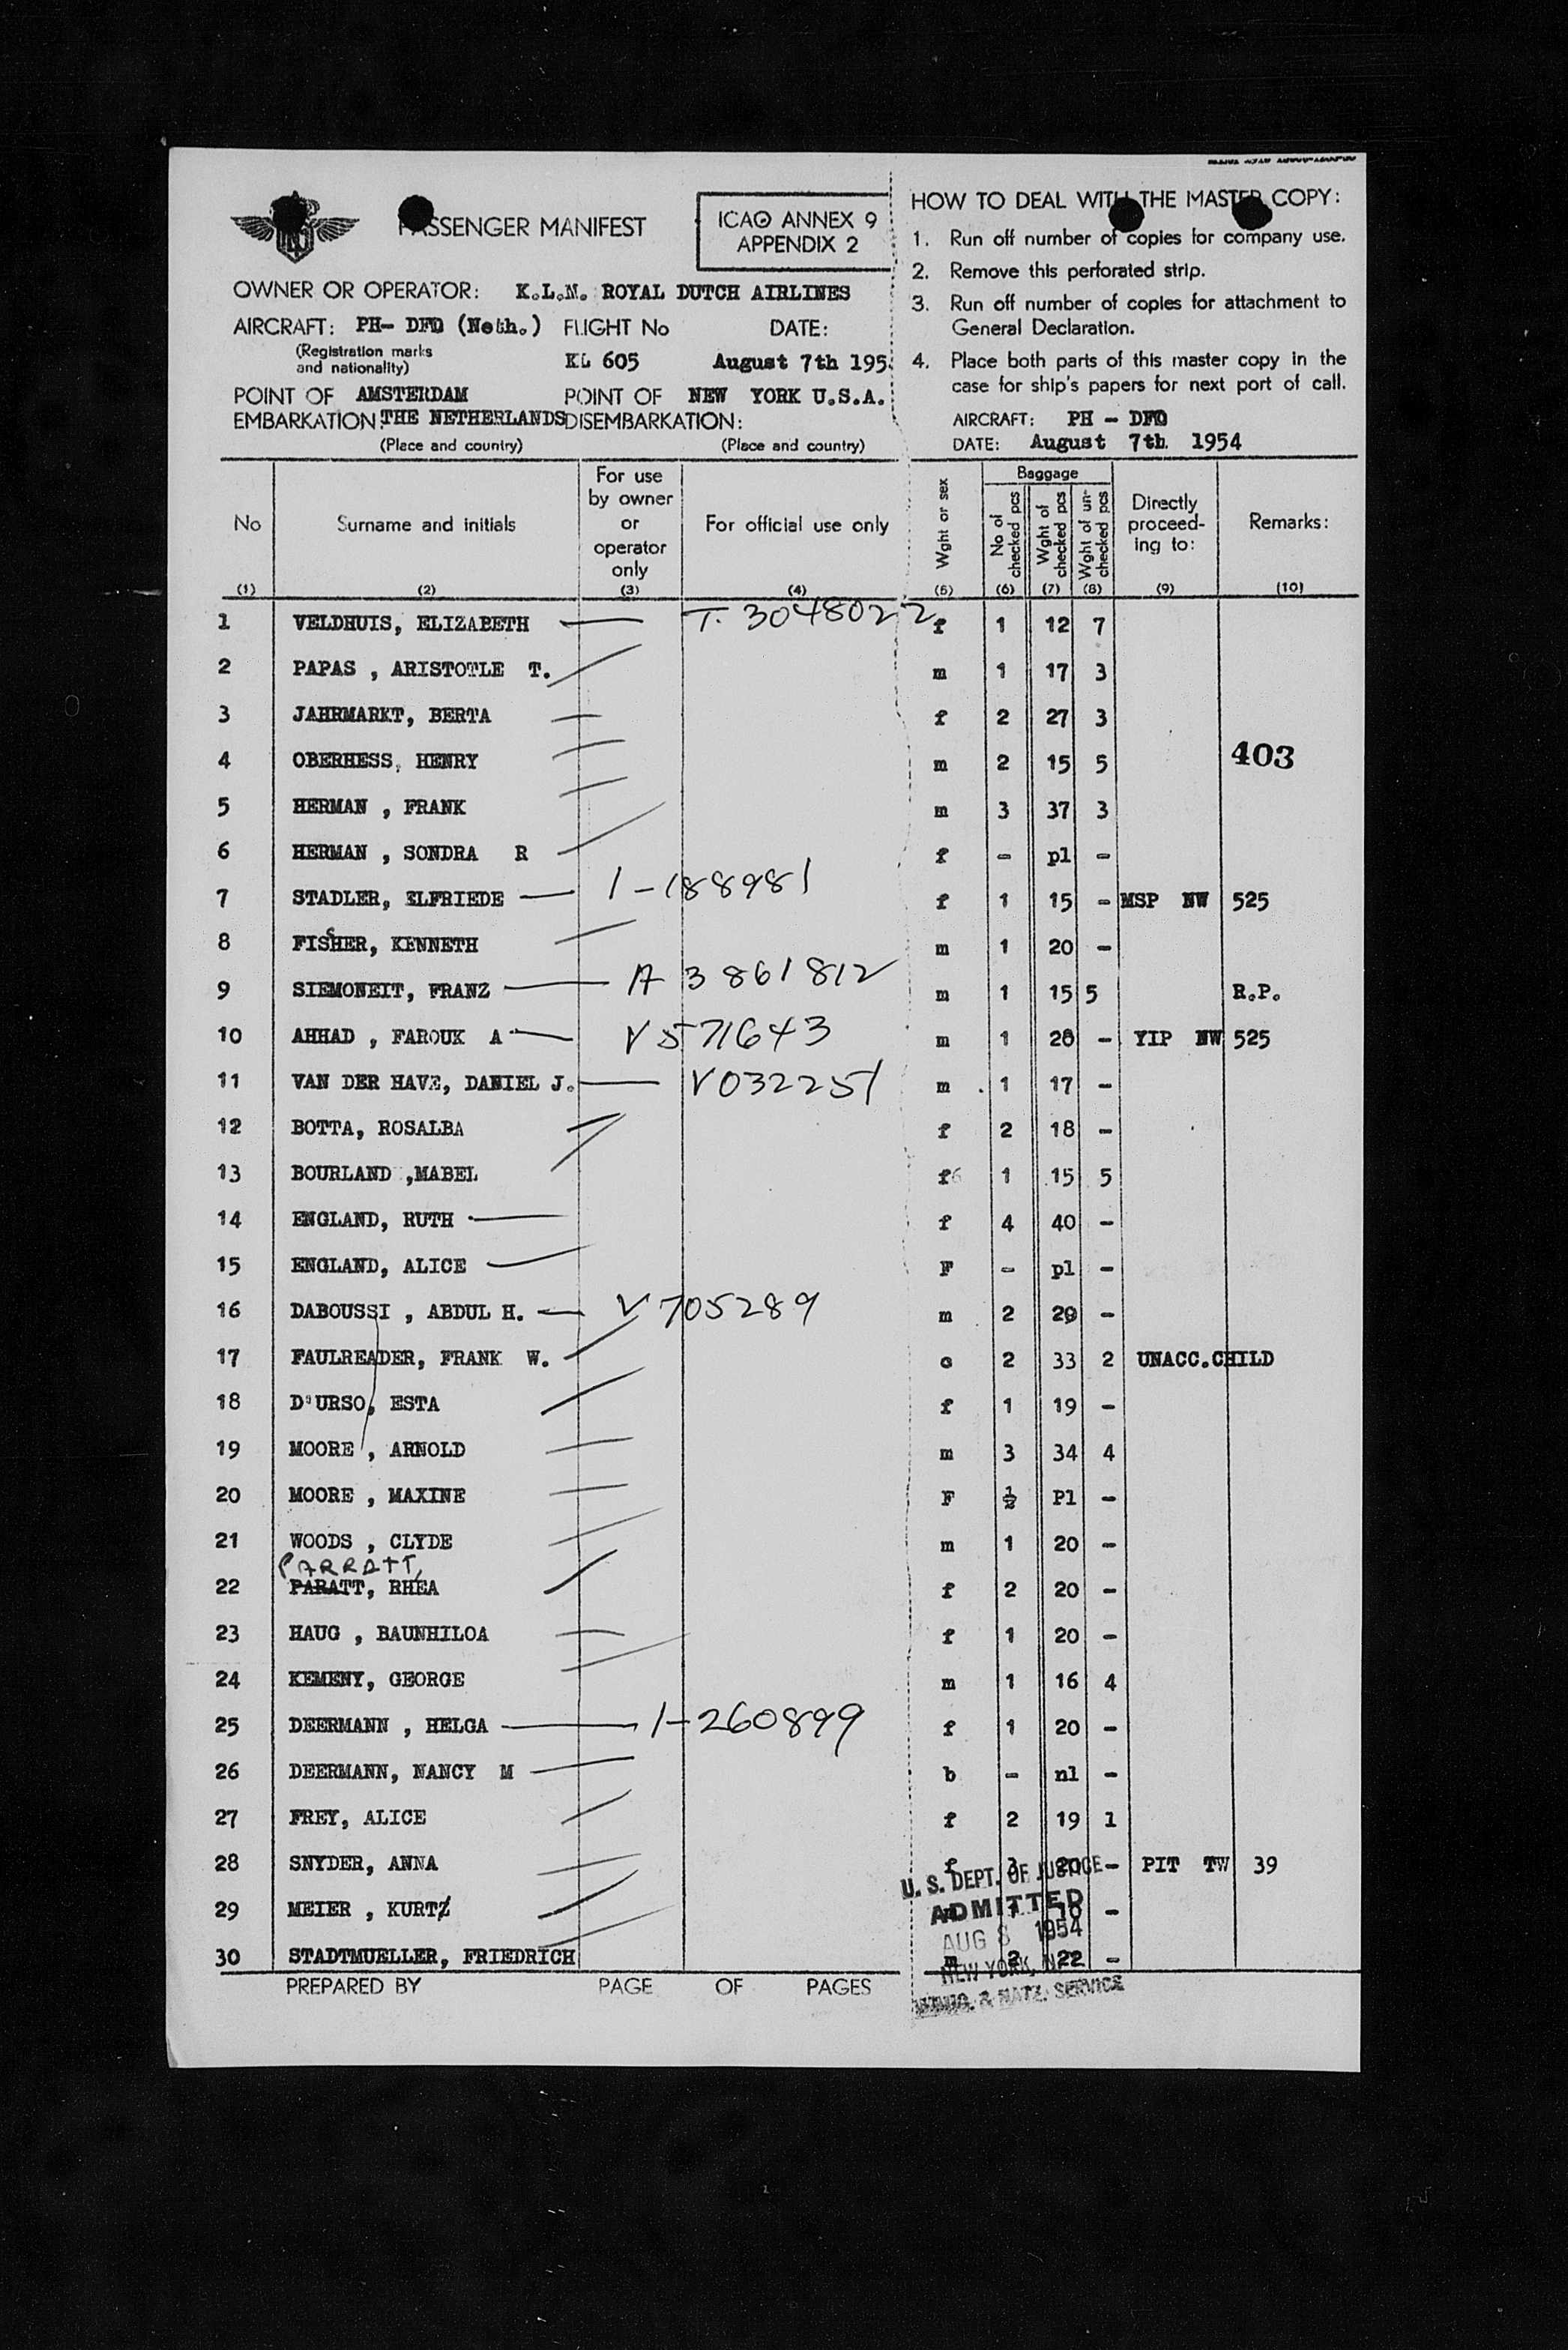 PASSENGER MANIFEST
ICAO ANNEX 9
APPENDIX 2
OWNER OR OPERATOR: K.L.M. ROYAL DUTCH AIRLINES
AIRCRAFT: PH- DFO (Neth.) FLIGHT No DATE:
(Registration marks
and nationality)
KL 605 August 7th 195
POINT OF AMSTERDAM POINT OF NEW YORK U.S.A.
EMBARKATION: THE NETHERLANDS DISEMBARKATION:
(Place and country) (Place and country)
HOW TO DEAL WITH THE MASTER COPY:
1. Run off number of copies for company use.
2. Remove this perforated strip.
3. Run off number of copies for attachment to
General Declaration.
4. Place both parts of this master copy in the
case for ship's papers for next port of call.
AIRCRAFT: PH - DFO
DATE: August 7th 1954
No Surname and initials For use by owner or operator only For official use only Wght or sex Baggage No of checked pcs Wght of checked pcs Wght of un-checked pcs Directly proceed-ing to: Remarks:
(1) (2) (3) (4) (5) (6) (7) (8) (9) (10)
1 VELDHUIS, ELIZABETH T. 3048022 f 1 12 7
2 PAPAS , ARISTOTLE T. m 1 17 3
3 JAHRMARKT, BERTA f 2 27 3
403
4 OBERHESS, HENRY m 2 15 5
5 HERMAN , FRANK m 3 37 3
6 HERMAN , SONDRA R f - pl -
7 STADLER, ELFRIEDE 1-188981 f 1 15 - MSP NW 525
8 FISHER, KENNETH m 1 20 -
9 SIEMONEIT, FRANZ A 3861812 m 1 15 5 R.P.
10 AHHAD , FAROUK A V571643 m 1 20 - YIP NW 525
11 VAN DER HAVE, DANIEL J. V032251 m 1 17 -
12 BOTTA, ROSALBA f 2 18 -
13 BOURLAND ,MABEL f 1 15 5
14 ENGLAND, RUTH f 4 40 -
15 ENGLAND, ALICE F - pl -
16 DABOUSSI , ABDUL H. V705289 m 2 20 -
17 FAULREADER, FRANK W. c 2 33 2 UNACC.CHILD
18 D'URSO, ESTA f 1 19 -
19 MOORE , ARNOLD m 3 34 4
20 MOORE , MAXINE F Pl -
21 WOODS , CLYDE m 1 20 -
PARRATT,
22 PARATT, RHEA f 2 20 -
23 HAUG , BAUNHILOA f 1 20 -
24 KEMENY, GEORGE m 1 16 4
25 DEERMANN , HELGA 1-260899 f 1 20 -
26 DEERMANN, NANCY M b - nl -
27 FREY, ALICE f 2 19 1
28 SNYDER, ANNA f 20 - PIT TW 39
29 MEIER , KURT -
30 STADTMUELLER, FRIEDRICH m 2 22 -
U. S. DEPT. OF JUSTICE
ADMITTED
AUG 8 1954
NEW YORK, N.Y.
IMMIG. & NATZ. SERVICE
PREPARED BY PAGE OF PAGES